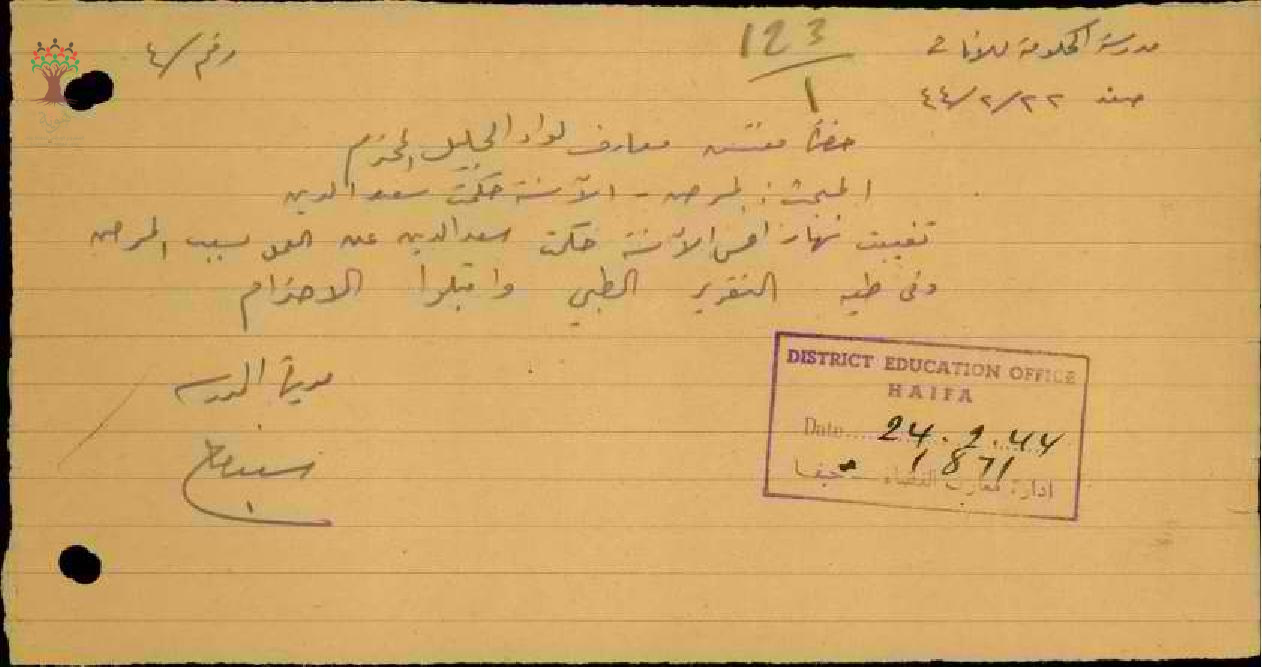 مدرسة الحكومة للاناث
صفد ٢٢/٢/٤٤
123
1
رقم /٤
حضرة مفتش معارف لواء الجليل المحترم
المبحث: المرض - الآنسة حكمت سعد الدين
تغيبت نهار امس الآنسة حكمت سعد الدين عن العمل بسبب المرض
وفي طيه التقرير الطبي واقبلوا الاحترام
مديرة المدرسة
DISTRICT EDUCATION OFFICE
HAIFA
Date 24.2.44
1871
ادارة معارف القضاء - حيفا